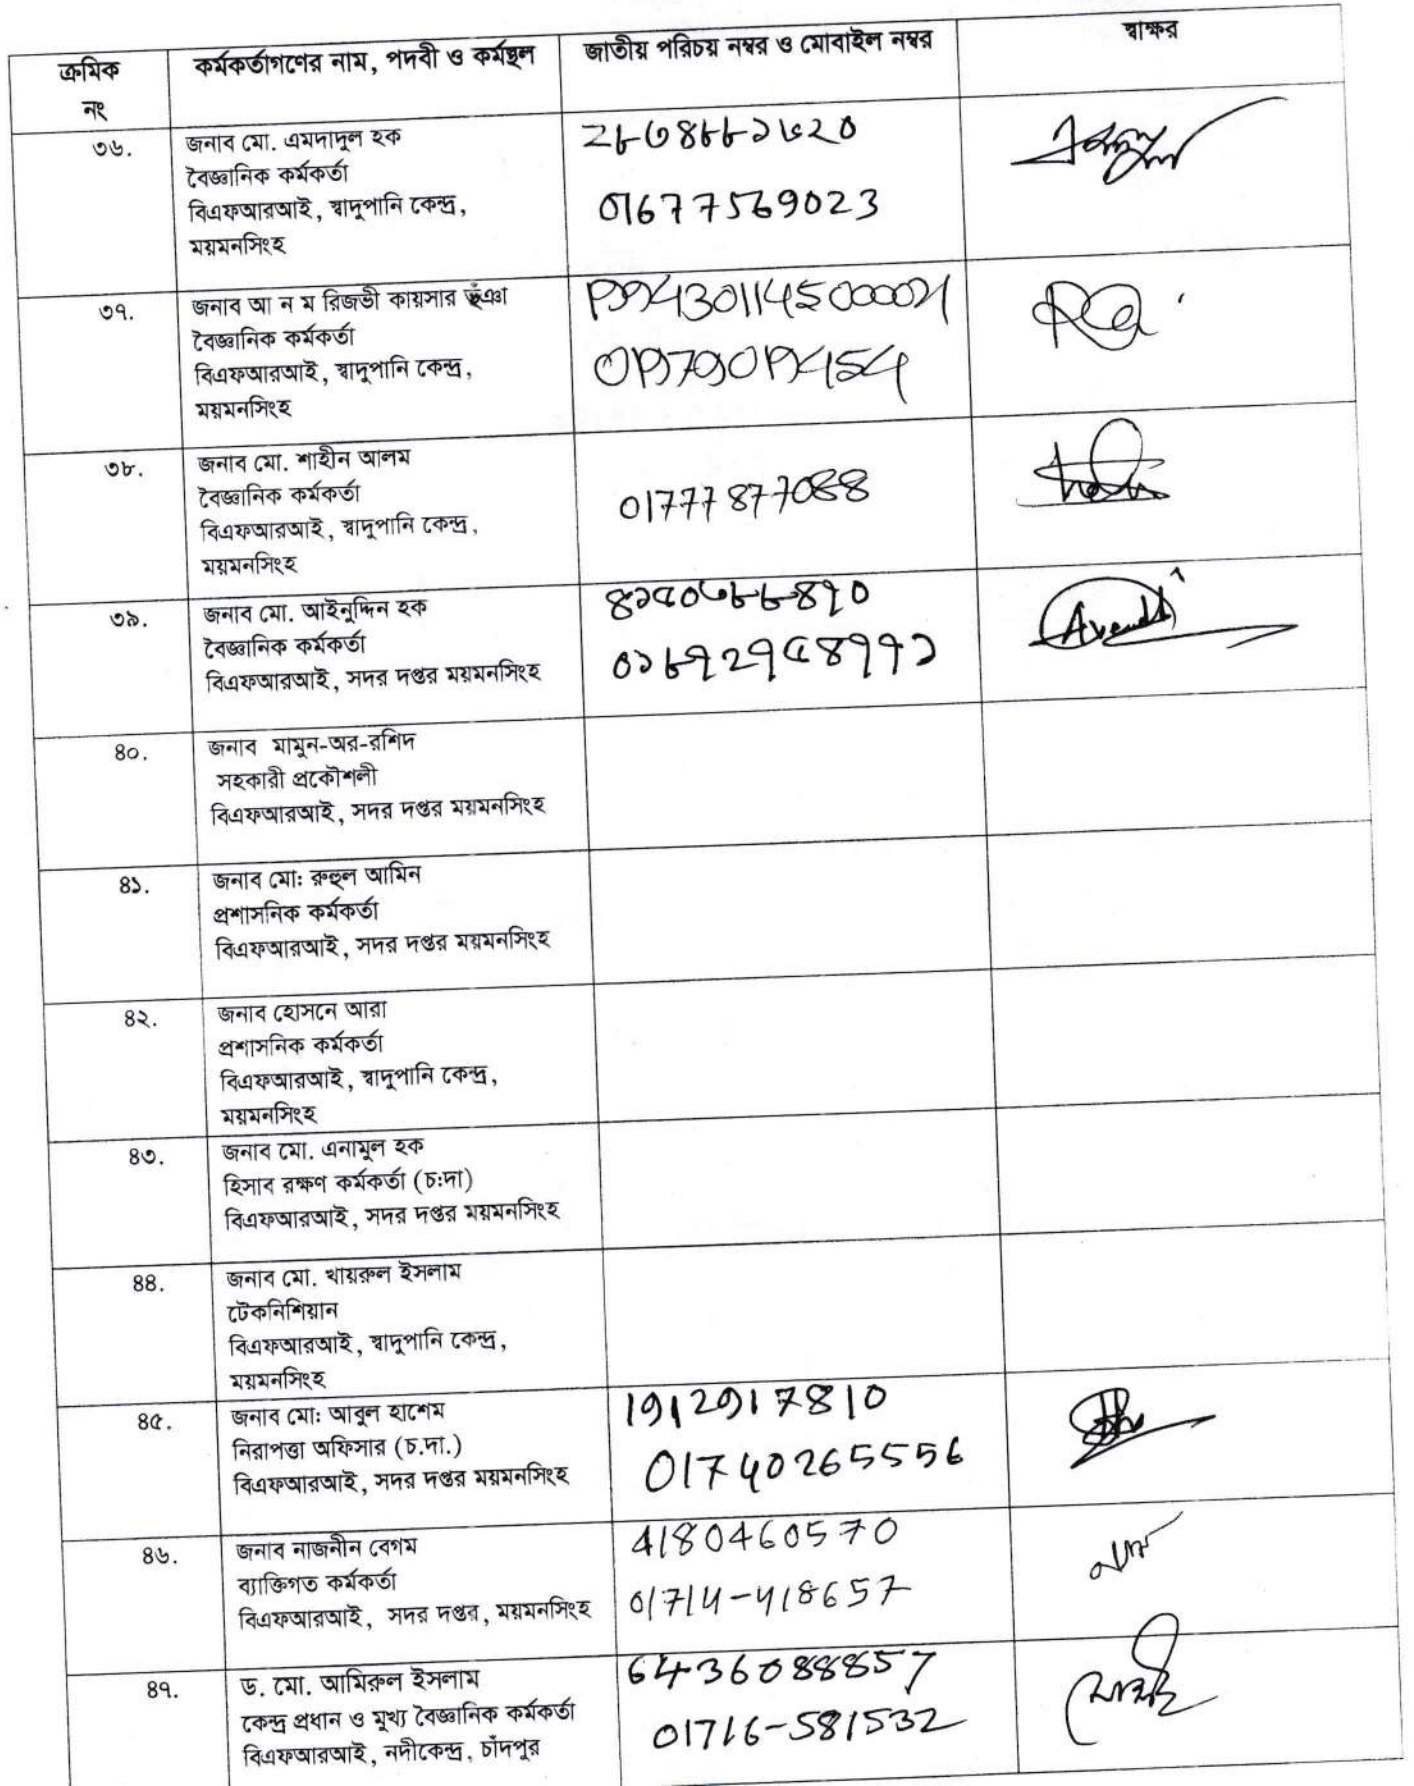 ক্রমিক
নং
কর্মকর্তাগণের নাম, পদবী ও কর্মস্থল
জাতীয় পরিচয় নম্বর ও মোবাইল নম্বর
স্বাক্ষর
৩৬.
জনাব মো. এমদাদুল হক
বৈজ্ঞানিক কর্মকর্তা
বিএফআরআই, স্বাদুপানি কেন্দ্র,
ময়মনসিংহ
01677569023
৩৭.
জনাব আ ন ম রিজভী কায়সার ভূঁঞা
বৈজ্ঞানিক কর্মকর্তা
বিএফআরআই, স্বাদুপানি কেন্দ্র,
ময়মনসিংহ
৩৮.
জনাব মো. শাহীন আলম
বৈজ্ঞানিক কর্মকর্তা
বিএফআরআই, স্বাদুপানি কেন্দ্র,
ময়মনসিংহ
01777877088
৩৯.
জনাব মো. আইনুদ্দিন হক
বৈজ্ঞানিক কর্মকর্তা
বিএফআরআই, সদর দপ্তর ময়মনসিংহ
৪০.
জনাব মামুন-অর-রশিদ
সহকারী প্রকৌশলী
বিএফআরআই, সদর দপ্তর ময়মনসিংহ
৪১.
জনাব মোঃ রুহুল আমিন
প্রশাসনিক কর্মকর্তা
বিএফআরআই, সদর দপ্তর ময়মনসিংহ
৪২.
জনাব হোসনে আরা
প্রশাসনিক কর্মকর্তা
বিএফআরআই, স্বাদুপানি কেন্দ্র,
ময়মনসিংহ
৪৩.
জনাব মো. এনামুল হক
হিসাব রক্ষণ কর্মকর্তা (চ:দা)
বিএফআরআই, সদর দপ্তর ময়মনসিংহ
৪৪.
জনাব মো. খায়রুল ইসলাম
টেকনিশিয়ান
বিএফআরআই, স্বাদুপানি কেন্দ্র,
ময়মনসিংহ
৪৫.
জনাব মোঃ আবুল হাশেম
নিরাপত্তা অফিসার (চ.দা.)
বিএফআরআই, সদর দপ্তর ময়মনসিংহ
1912917810
01740265556
৪৬.
জনাব নাজনীন বেগম
ব্যাক্তিগত কর্মকর্তা
বিএফআরআই, সদর দপ্তর, ময়মনসিংহ
4180460570
01714-418657
৪৭.
ড. মো. আমিরুল ইসলাম
কেন্দ্র প্রধান ও মুখ্য বৈজ্ঞানিক কর্মকর্তা
বিএফআরআই, নদীকেন্দ্র, চাঁদপুর
6436088857
01716-581532